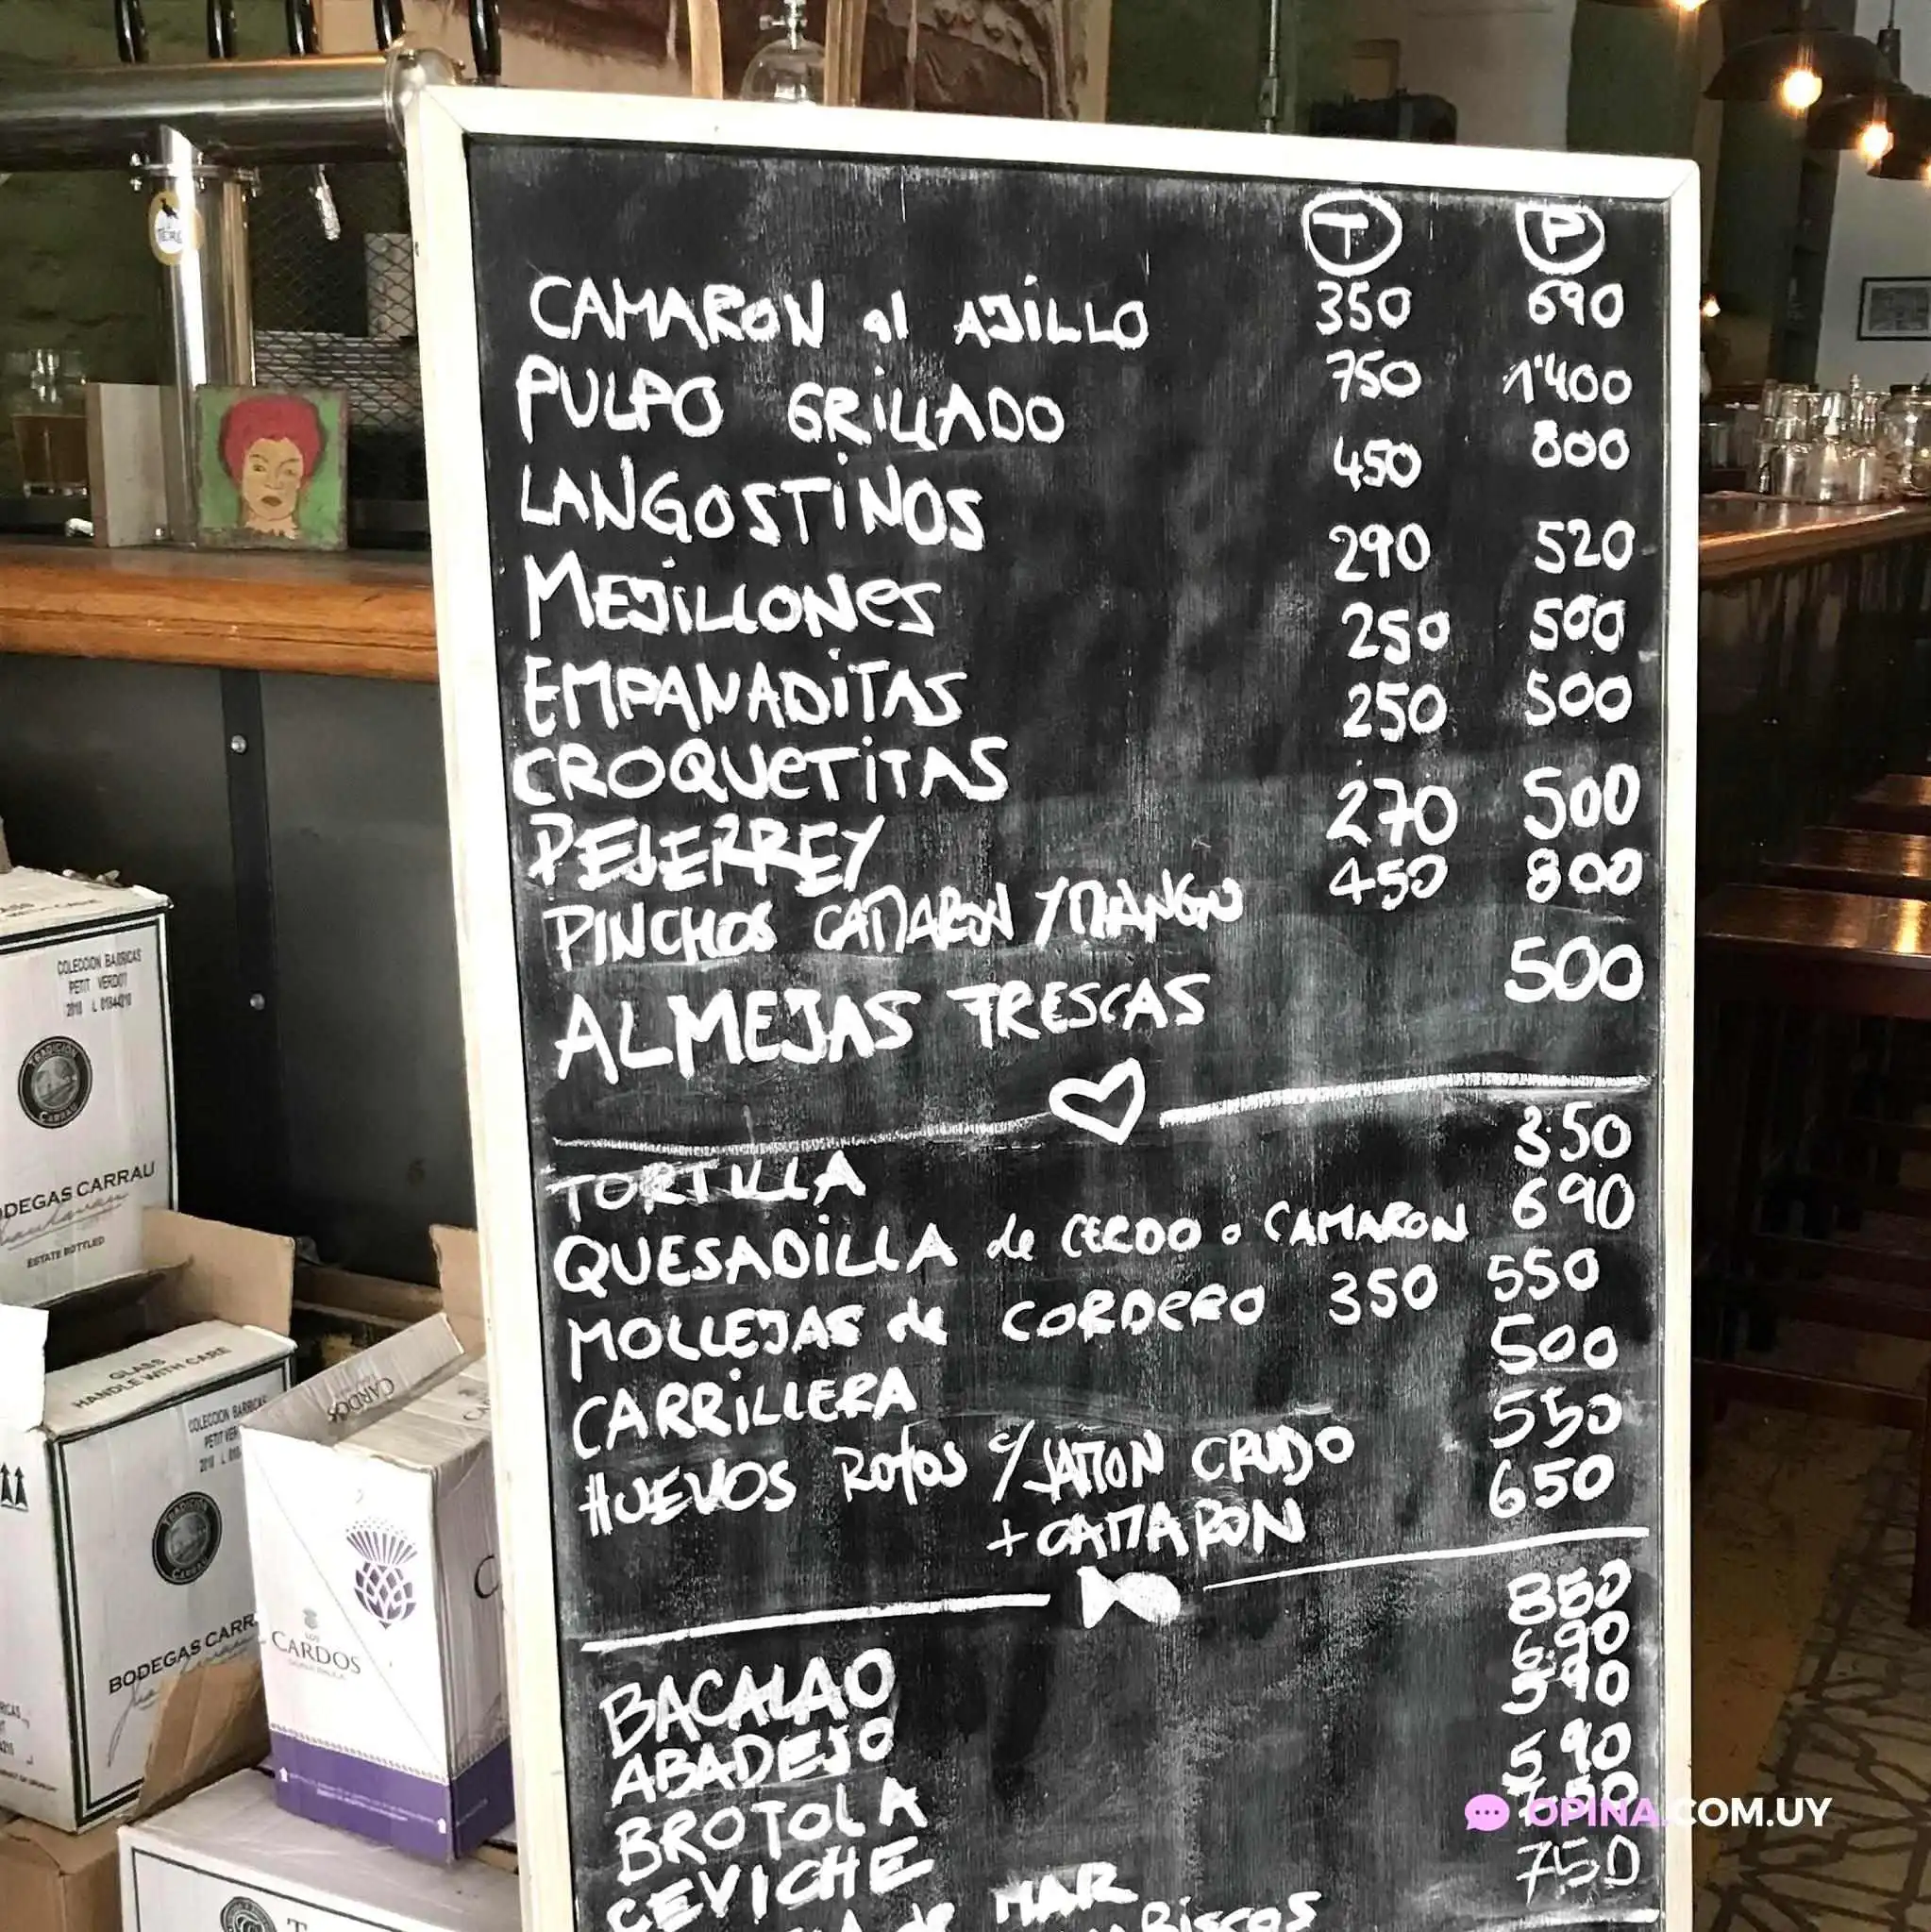 T P
CAMARON al AJILLO 350 690
PULPO GRILLADO 750 1'400
LANGOSTINOS 450 800
MEJILLONES 290 520
EMPANADITAS 250 500
CROQUETITAS 250 500
PEJERREY 270 500
PINCHOS CAMARON / MANGO 450 800
ALMEJAS FRESCAS 500
TORTILLA 350
QUESADILLA de CERDO o CAMARON 690
MOLLEJAS de CORDERO 350 550
CARRILLERA 500
HUEVOS ROTOS c/JAMON CRUDO 550
+ CAMARON 650
BACALAO 850
ABADEJO 690
BROTOLA 590
CEVICHE 590
de MAR
750
COLECCION BARRICAS
PETIT VERDOT
2018
TRADICIÓN
CARRAU
BODEGAS CARRAU
ESTATE BOTTLED
GLASS
HANDLE WITH CARE
COLECCION BARRICAS
TRADICIÓN
CARRAU
BODEGAS CARR
CARDOS
LOS
CARDOS
OPINA.COM.UY